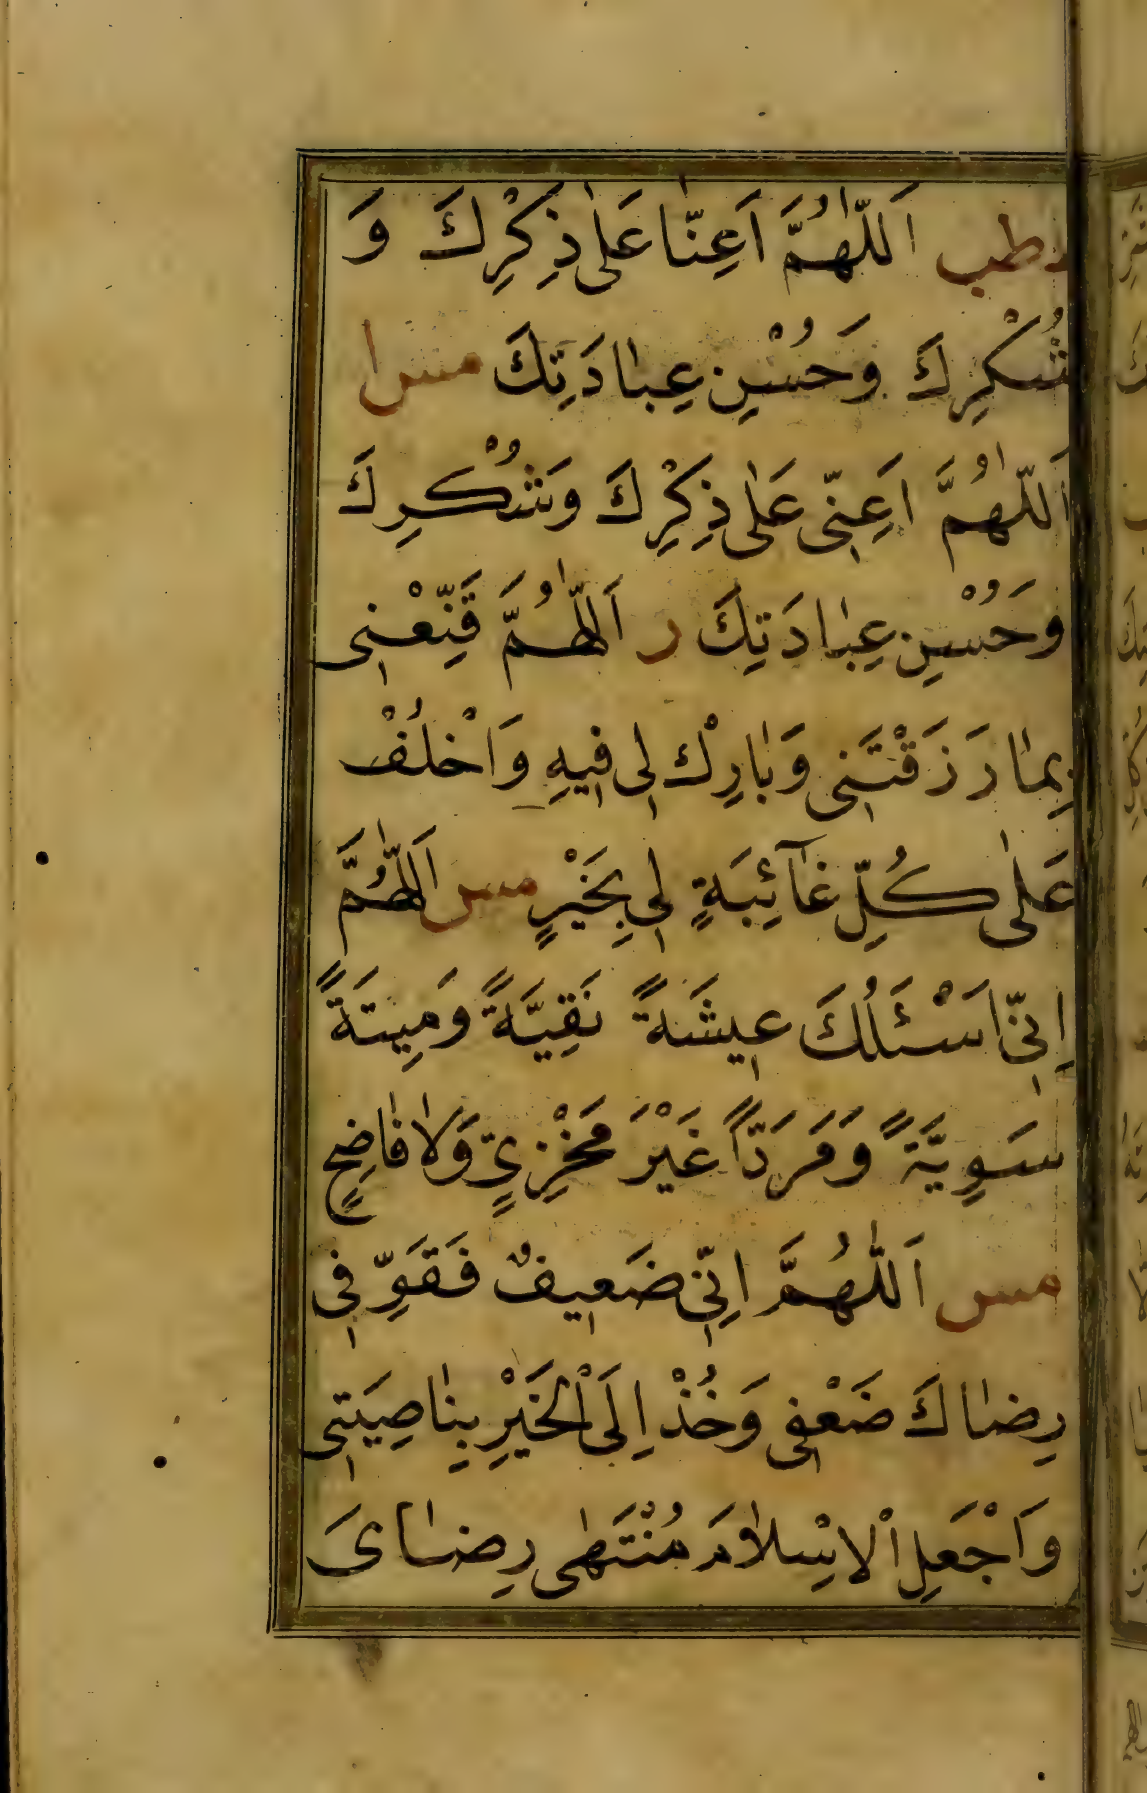 طب اَللّٰهُمَّ اَعِنَّا عَلٰى ذِكْرِكَ وَ
شُكْرِكَ وَحُسْنِ عِبٰادَتِكَ مس ا
اَللّٰهُمَّ اَعِنِّى عَلٰى ذِكْرِكَ وَشُكْرِكَ
وَحُسْنِ عِبٰادَتِكَ ر اَللّٰهُمَّ قَنِّعْنِى
بِمٰا رَزَقْتَنِى وَبٰارِكْ لِى فِيهِ وَاَخْلُفْ
عَلٰى كُلِّ غٰآئِبَةٍ لِى بِخَيْرٍ مس اَللّٰهُمَّ
اِنِّى اَسْئَلُكَ عِيشَةً نَقِيَّةً وَمِيتَةً
سَوِيَّةً وَمَرَدًّا غَيْرَ مَخْزِىٍّ وَلٰا فٰاضِحٍ
مس اَللّٰهُمَّ اِنِّى ضَعِيفٌ فَقَوِّ فِى
رِضٰاكَ ضَعْفِى وَخُذْ اِلَى الْخَيْرِ بِنٰاصِيَتِى
وَاَجْعَلِ الْاِسْلٰامَ مُنْتَهٰى رِضٰاىَ